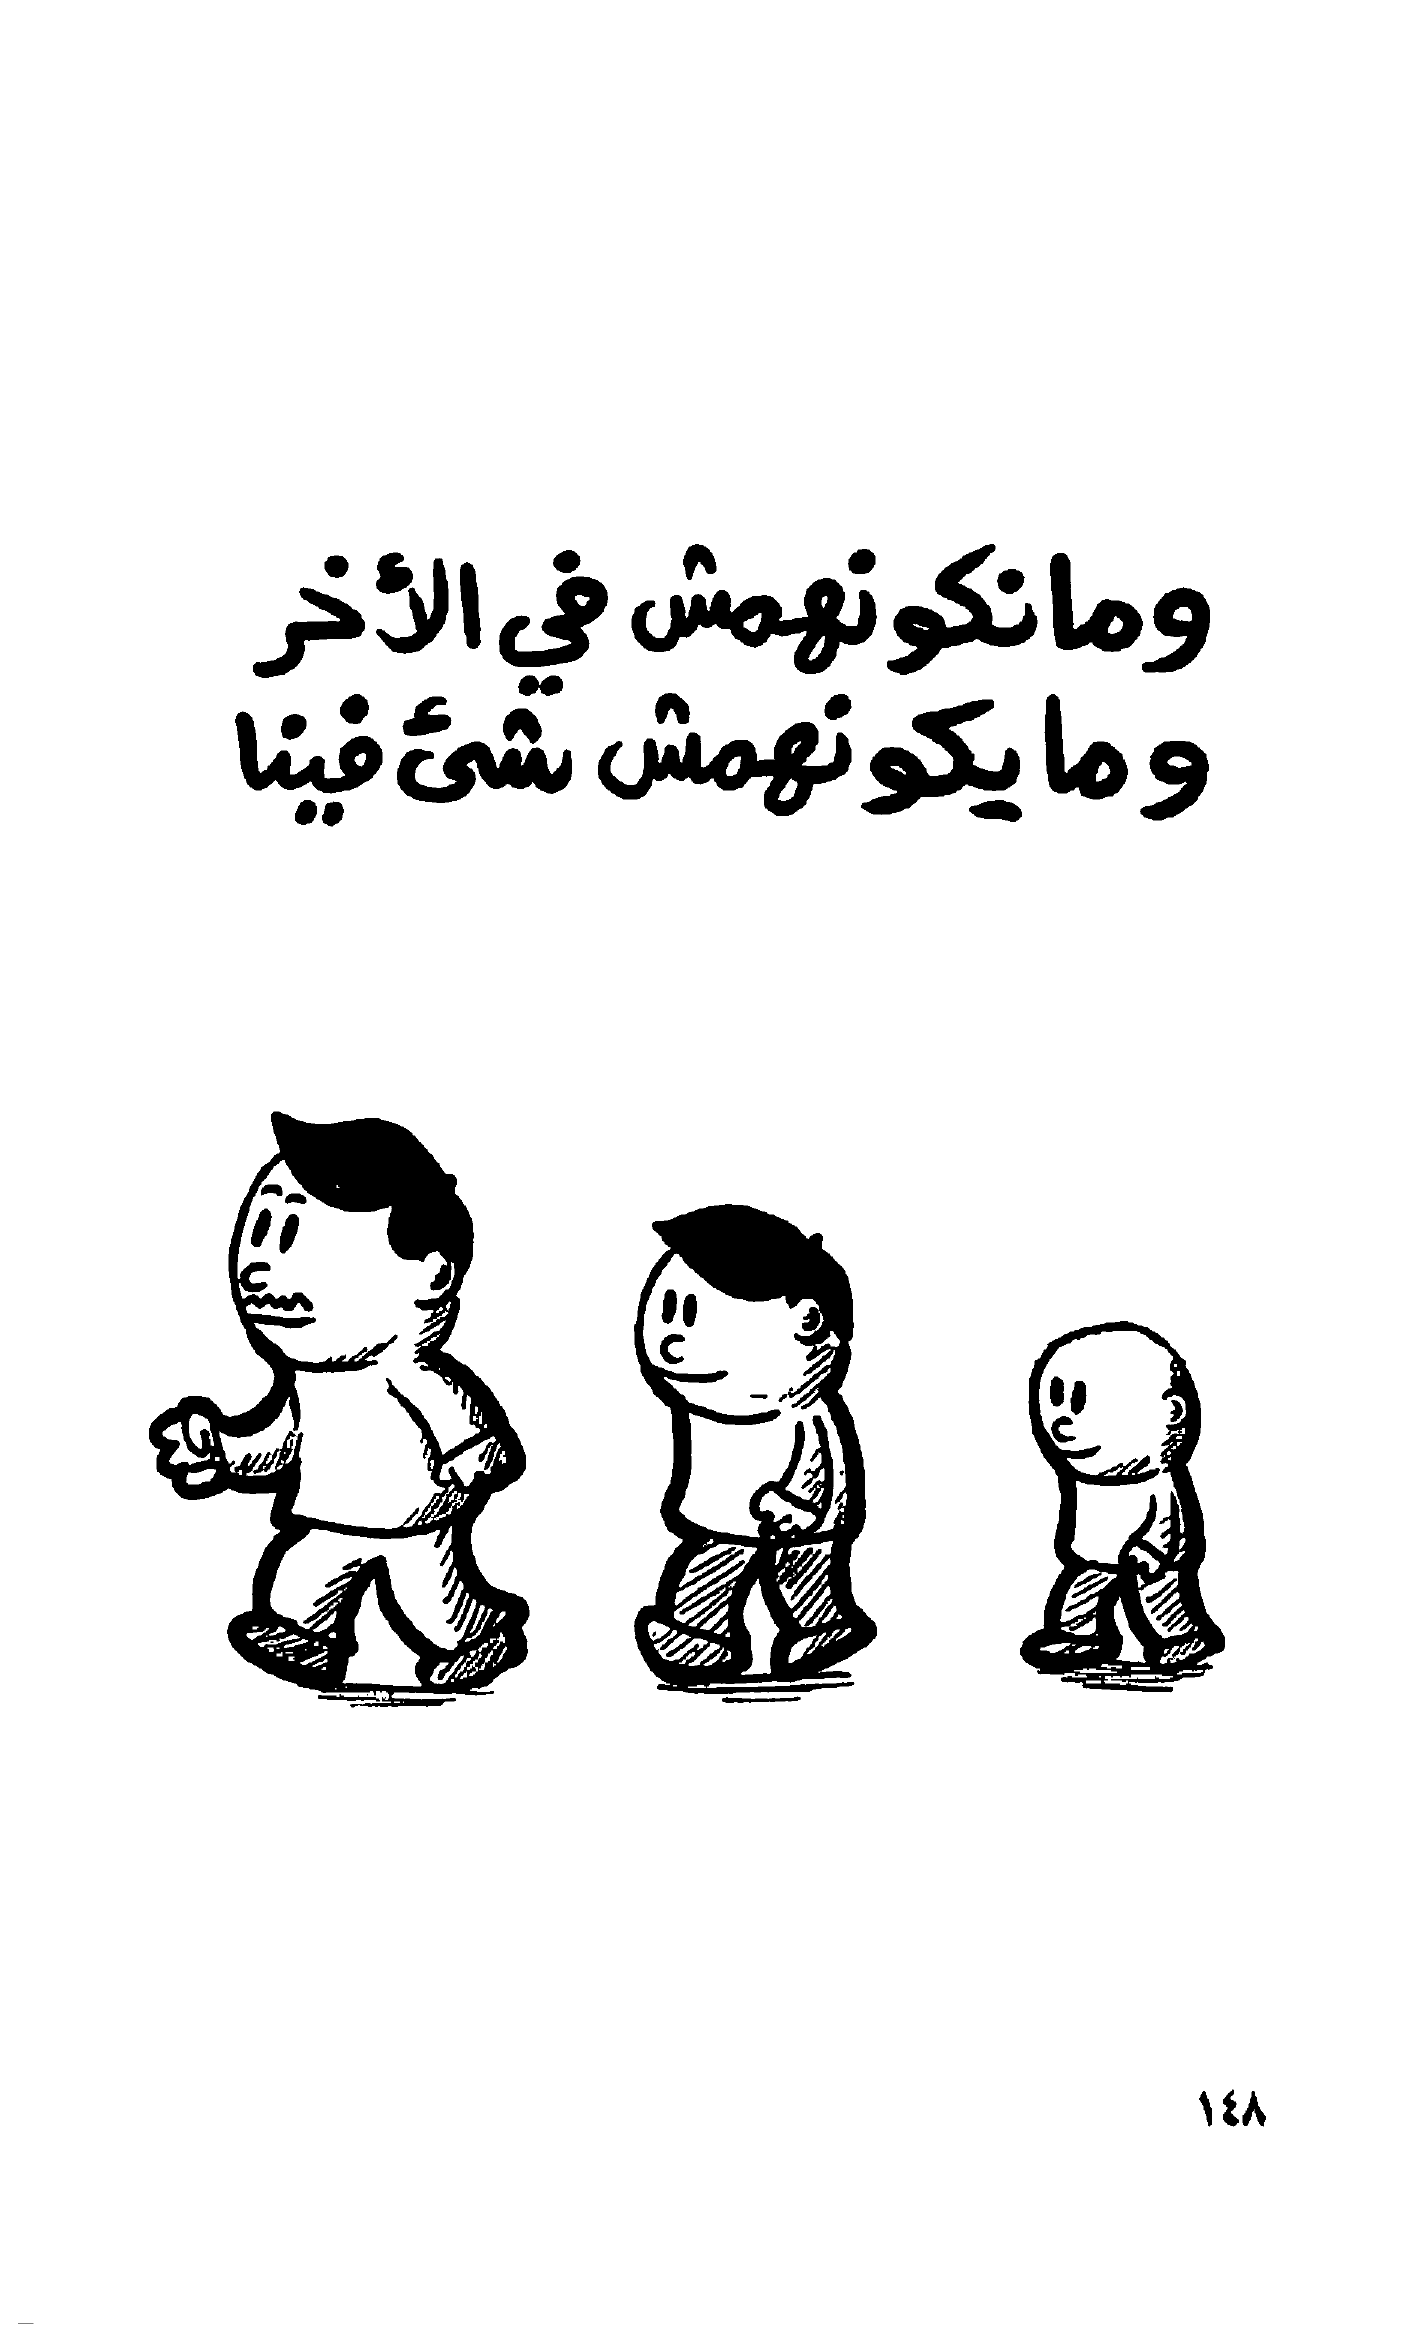 ومانكونهمش في الأخر
ومايكونهمش شئ فينا
١٤٨